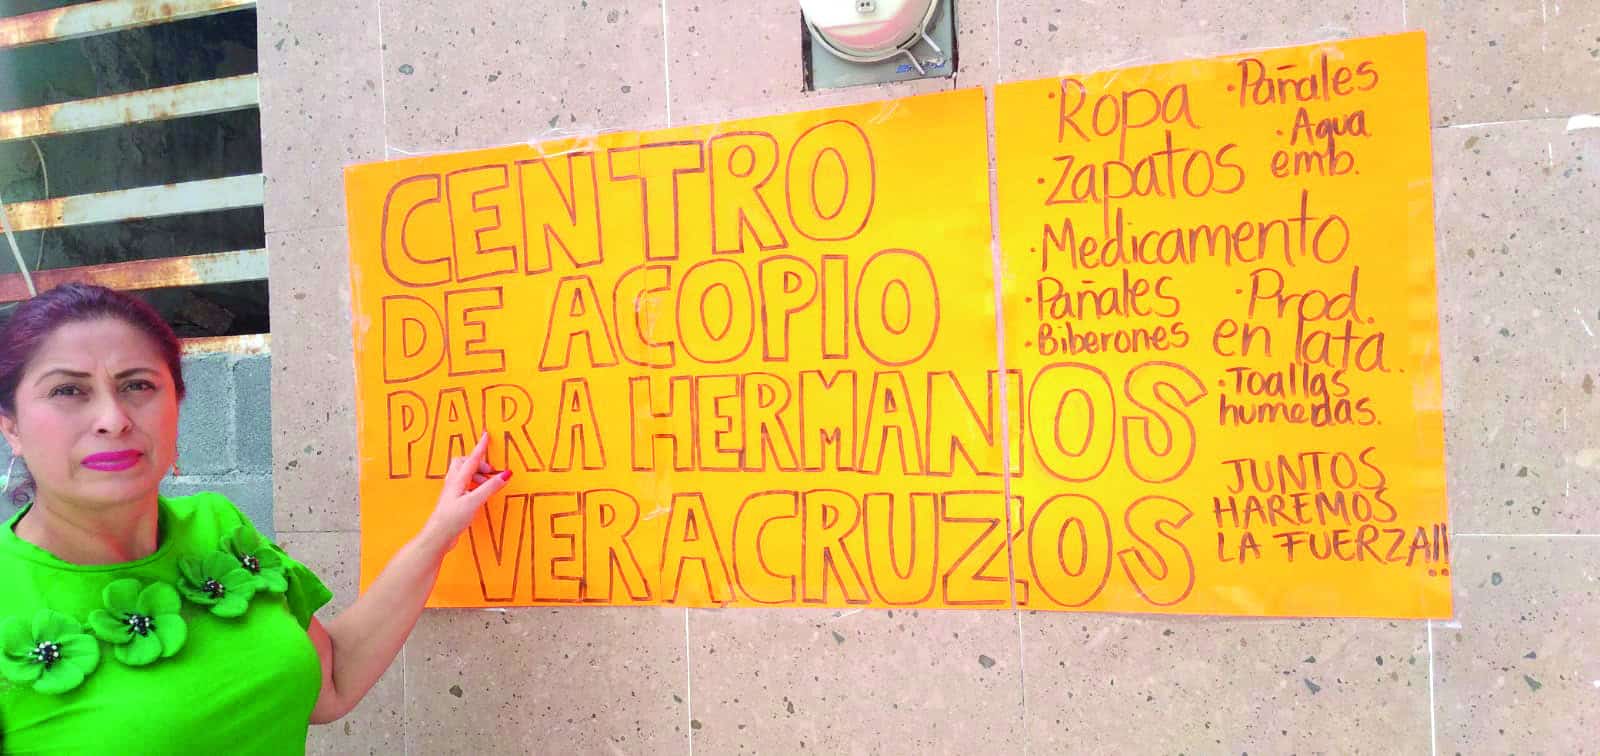 CENTRO
DE ACOPIO
PARA HERMANOS
VERACRUZOS
·Ropa
·Zapatos
·Medicamento
·Pañales
·Biberones
·Pañales
·Agua
emb.
·Prod.
en lata.
·Toallas
humedas.
JUNTOS
HAREMOS
LA FUERZA!!